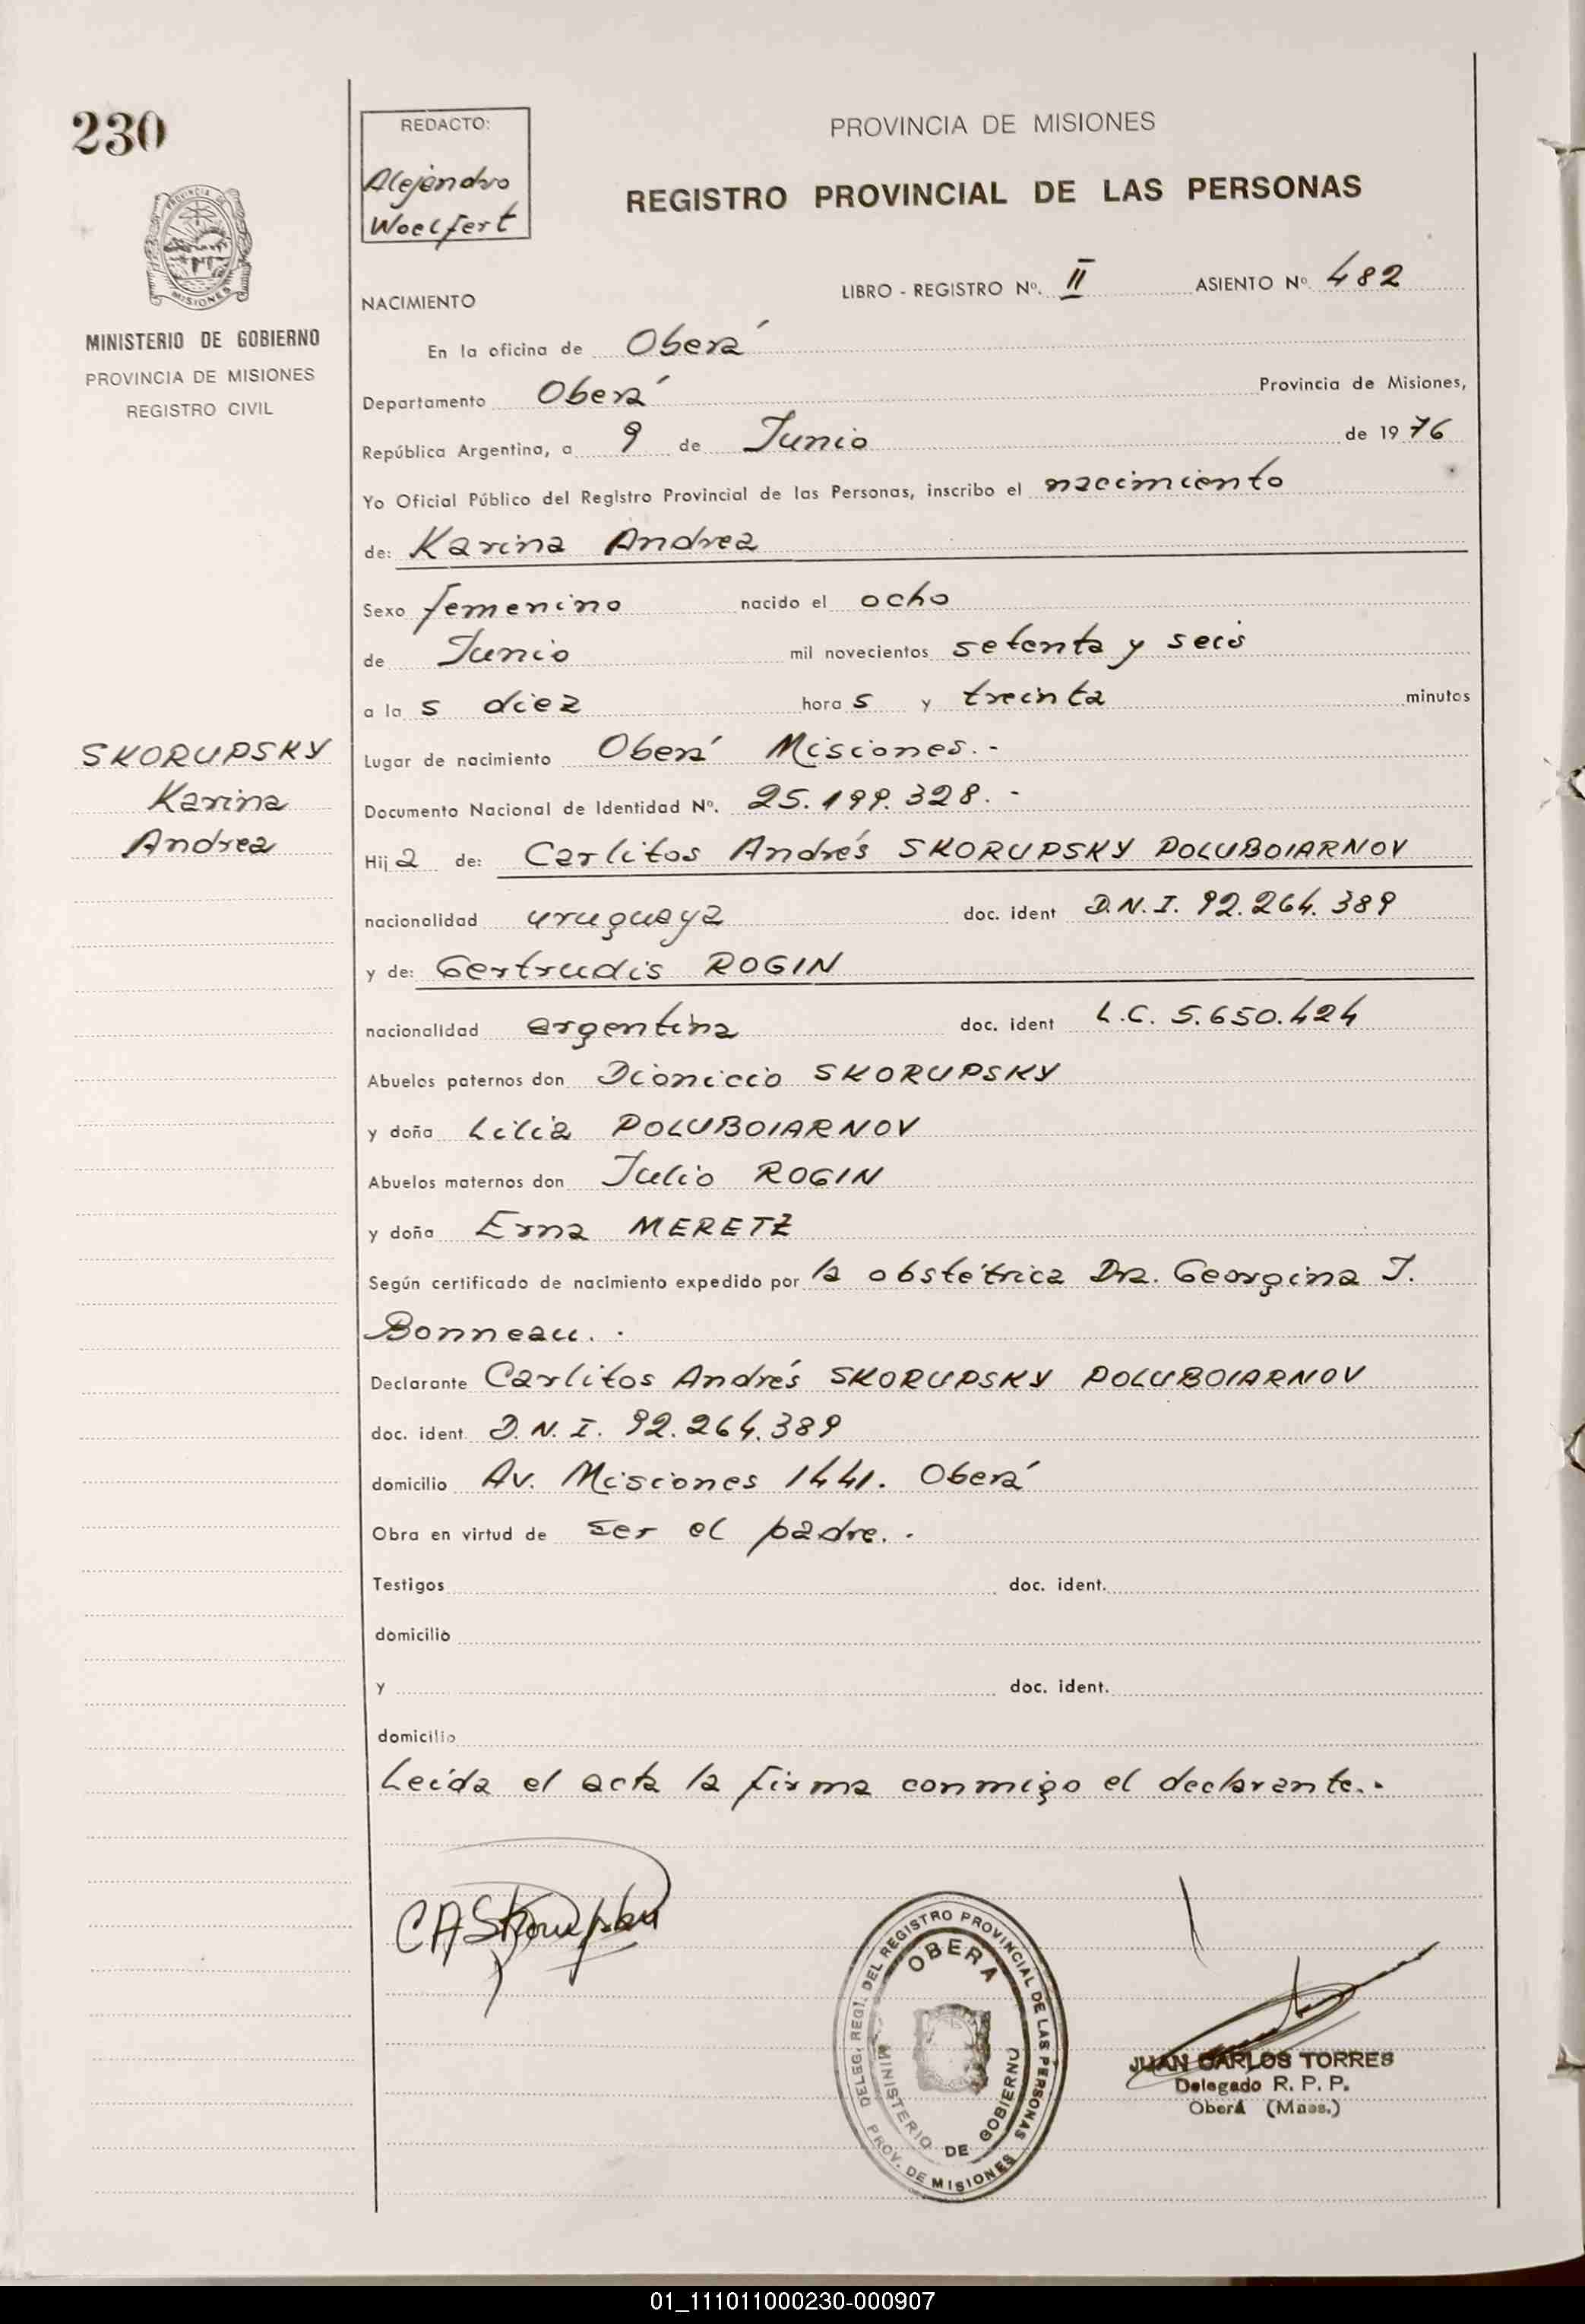 230
PROVINCIA DE
MISIONES
MINISTERIO DE GOBIERNO
PROVINCIA DE MISIONES
REGISTRO CIVIL
REDACTO:
Alejandro
Woelfert
PROVINCIA DE MISIONES
REGISTRO PROVINCIAL DE LAS PERSONAS
NACIMIENTO LIBRO - REGISTRO Nº. II ASIENTO Nº 482
En la oficina de Oberá
Departamento Oberá Provincia de Misiones,
República Argentina, a 9 de Junio de 1976
Yo Oficial Público del Registro Provincial de las Personas, inscribo el nacimiento
de: Karina Andrea
Sexo femenino nacido el ocho
de Junio mil novecientos setenta y seis
a las diez horas y treinta minutos
SKORUPSKY
Karina
Andrea
Lugar de nacimiento Oberá Misiones.-
Documento Nacional de Identidad Nº. 25.199.328.-
Hija de: Carlitos Andrés SKORUPSKY POLUBOIARNOV
nacionalidad uruguaya doc. ident D.N.I. 92.264.389
y de: Gertrudis ROGIN
nacionalidad argentina doc. ident L.C. 5.650.424
Abuelos paternos don Dionicio SKORUPSKY
y doña Lilia POLUBOIARNOV
Abuelos maternos don Julio ROGIN
y doña Erna MERETZ
Según certificado de nacimiento expedido por la obstétrica Dra. Georgina J.
Bonneau. .
Declarante Carlitos Andrés SKORUPSKY POLUBOIARNOV
doc. ident. D.N.I. 92.264.389
domicilio Av. Misiones 1441. Oberá
Obra en virtud de ser el padre. .
Testigos doc. ident.
domicilio
y doc. ident.
domicilio
Leída el acta la firma conmigo el declarante..
CASkorupsky
DELEG. REGI. DEL REGISTRO PROVINCIAL DE LAS PERSONAS
OBERA
MINISTERIO DE GOBIERNO
PROV. DE MISIONES
JUAN CARLOS TORRES
Delegado R. P. P.
Oberá (Mnes.)
01_111011000230-000907